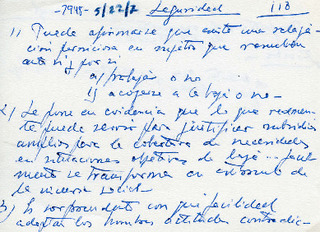 -7945- 5/22/2 Seguridad 118
1) Puede afirmarse que existe una relaja-
ción perniciosa en sujetos que resuelven
ante sí y por sí
a) trabajar o no
b) acogerse a la baja o no-
2) Se pone en evidencia que lo que realmen-
te puede servir para justificar subsidios
amplios para la cobertura de necesidades
en situaciones objetivas de baja... fácil
mente se transforma en
de la inercia social-
3) Es sorprendente con qué facilidad
adoptan los hombres actitudes contradic-